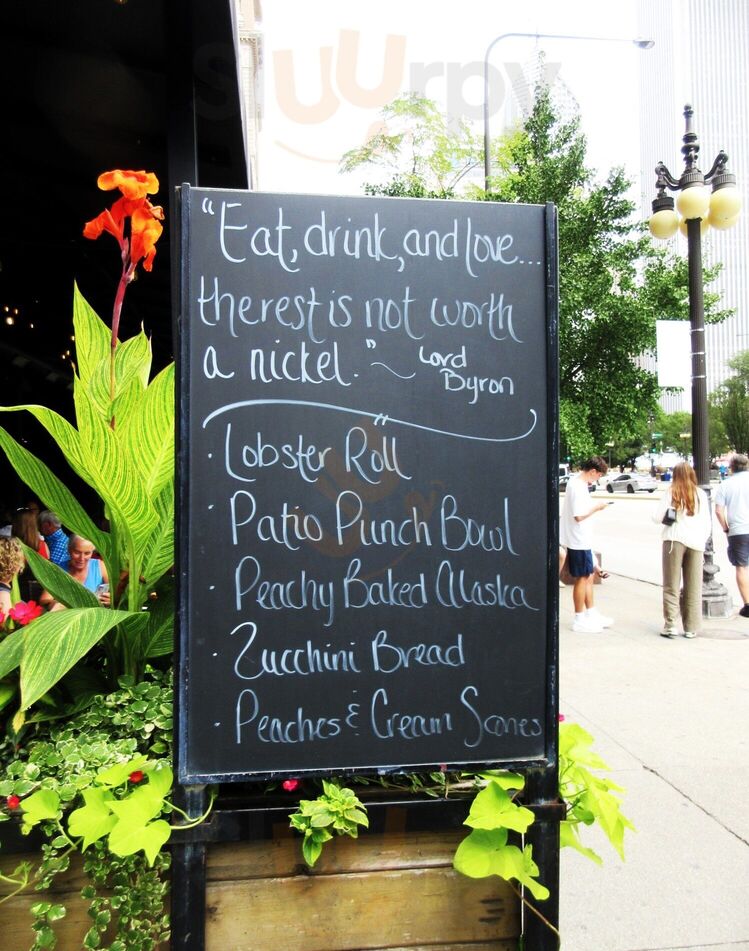 sluurpy
"Eat, drink, and love...
the rest is not worth
a nickel." ~ Lord
Byron
· Lobster Roll
· Patio Punch Bowl
· Peachy Baked Alaska
· Zucchini Bread
· Peaches & Cream Scones